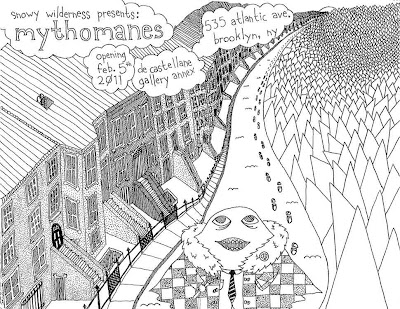 snowy wilderness presents:
mythomanes
535 atlantic ave.
brooklyn, ny
opening
feb. 5th
2011
de castellane
gallery annex